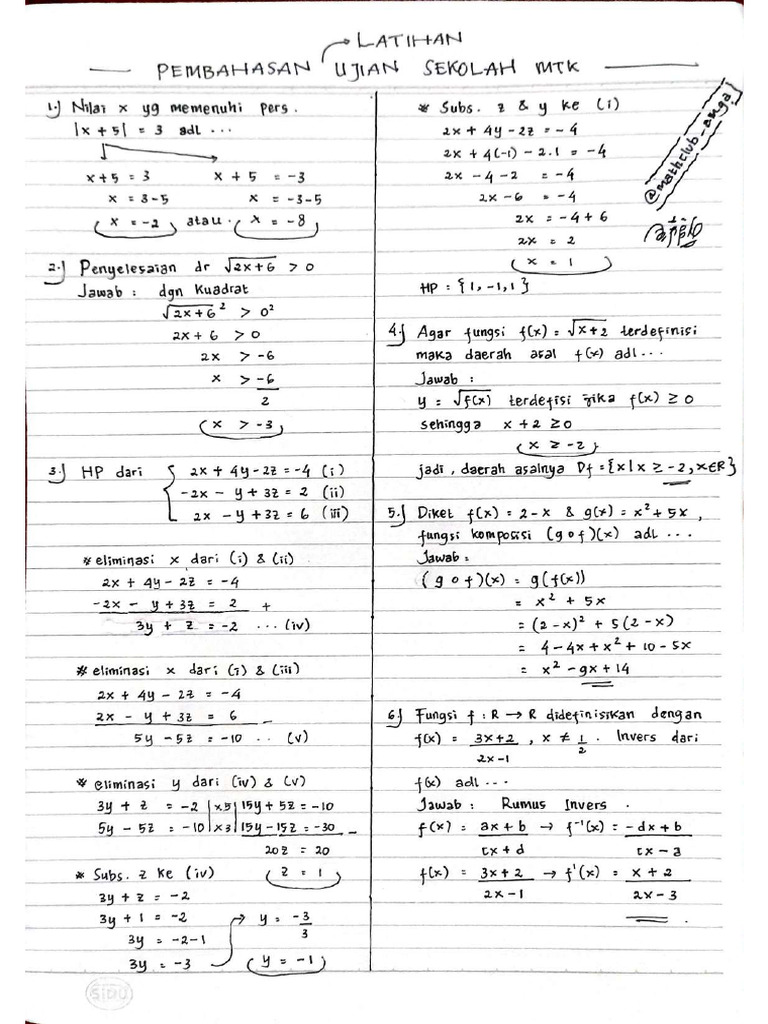 LATIHAN
PEMBAHASAN UJIAN SEKOLAH MTK
1.) Nilai x yg memenuhi pers.
|x + 5| = 3 adl ...
x + 5 = 3    x + 5 = -3
x = 3-5    x = -3-5
x = -2 atau. x = -8
2.) Penyelesaian dr √2x+6 > 0
Jawab : dgn Kuadrat
√2x+6² > 0²
2x + 6 > 0
2x > -6
x > -6/2
x > -3
3.) HP dari { 2x + 4y - 2z = -4 (i)
-2x - y + 3z = 2 (ii)
2x - y + 3z = 6 (iii)
* eliminasi x dari (i) & (ii)
2x + 4y - 2z = -4
-2x - y + 3z = 2 +
3y + z = -2 ... (iv)
* eliminasi x dari (i) & (iii)
2x + 4y - 2z = -4
2x - y + 3z = 6 -
5y - 5z = -10 .. (v)
* eliminasi y dari (iv) & (v)
3y + z = -2 |x5| 15y + 5z = -10
5y - 5z = -10 |x3| 15y - 15z = -30 -
20z = 20
* Subs. z ke (iv)    z = 1
3y + z = -2
3y + 1 = -2    y = -3/3
3y = -2-1
3y = -3    y = -1
* Subs. z & y ke (i)
2x + 4y - 2z = -4
2x + 4(-1) - 2.1 = -4
2x - 4 - 2 = -4
2x - 6 = -4
2x = -4 + 6
2x = 2
x = 1
HP = {1, -1, 1}
@mathclub_anga
4.) Agar fungsi f(x) = √x+2 terdefinisi
maka daerah asal f(x) adl ...
Jawab :
y = √f(x) terdefisi jika f(x) ≥ 0
sehingga x + 2 ≥ 0
x ≥ -2
jadi, daerah asalnya Df = {x | x ≥ -2, x∈R}
5.) Diket f(x) = 2 - x & g(x) = x² + 5x ,
fungsi komposisi (g o f)(x) adl ...
Jawab :
(g o f)(x) = g(f(x))
= x² + 5x
= (2 - x)² + 5(2 - x)
= 4 - 4x + x² + 10 - 5x
= x² - 9x + 14
6.) Fungsi f : R → R didefinisikan dengan
f(x) = 3x+2/2x-1 , x ≠ 1/2 . Invers dari
f(x) adl ...
Jawab : Rumus Invers .
f(x) = ax + b/cx + d → f⁻¹(x) = -dx + b/cx - a
f(x) = 3x + 2/2x - 1 → f¹(x) = x + 2/2x - 3
SIDU